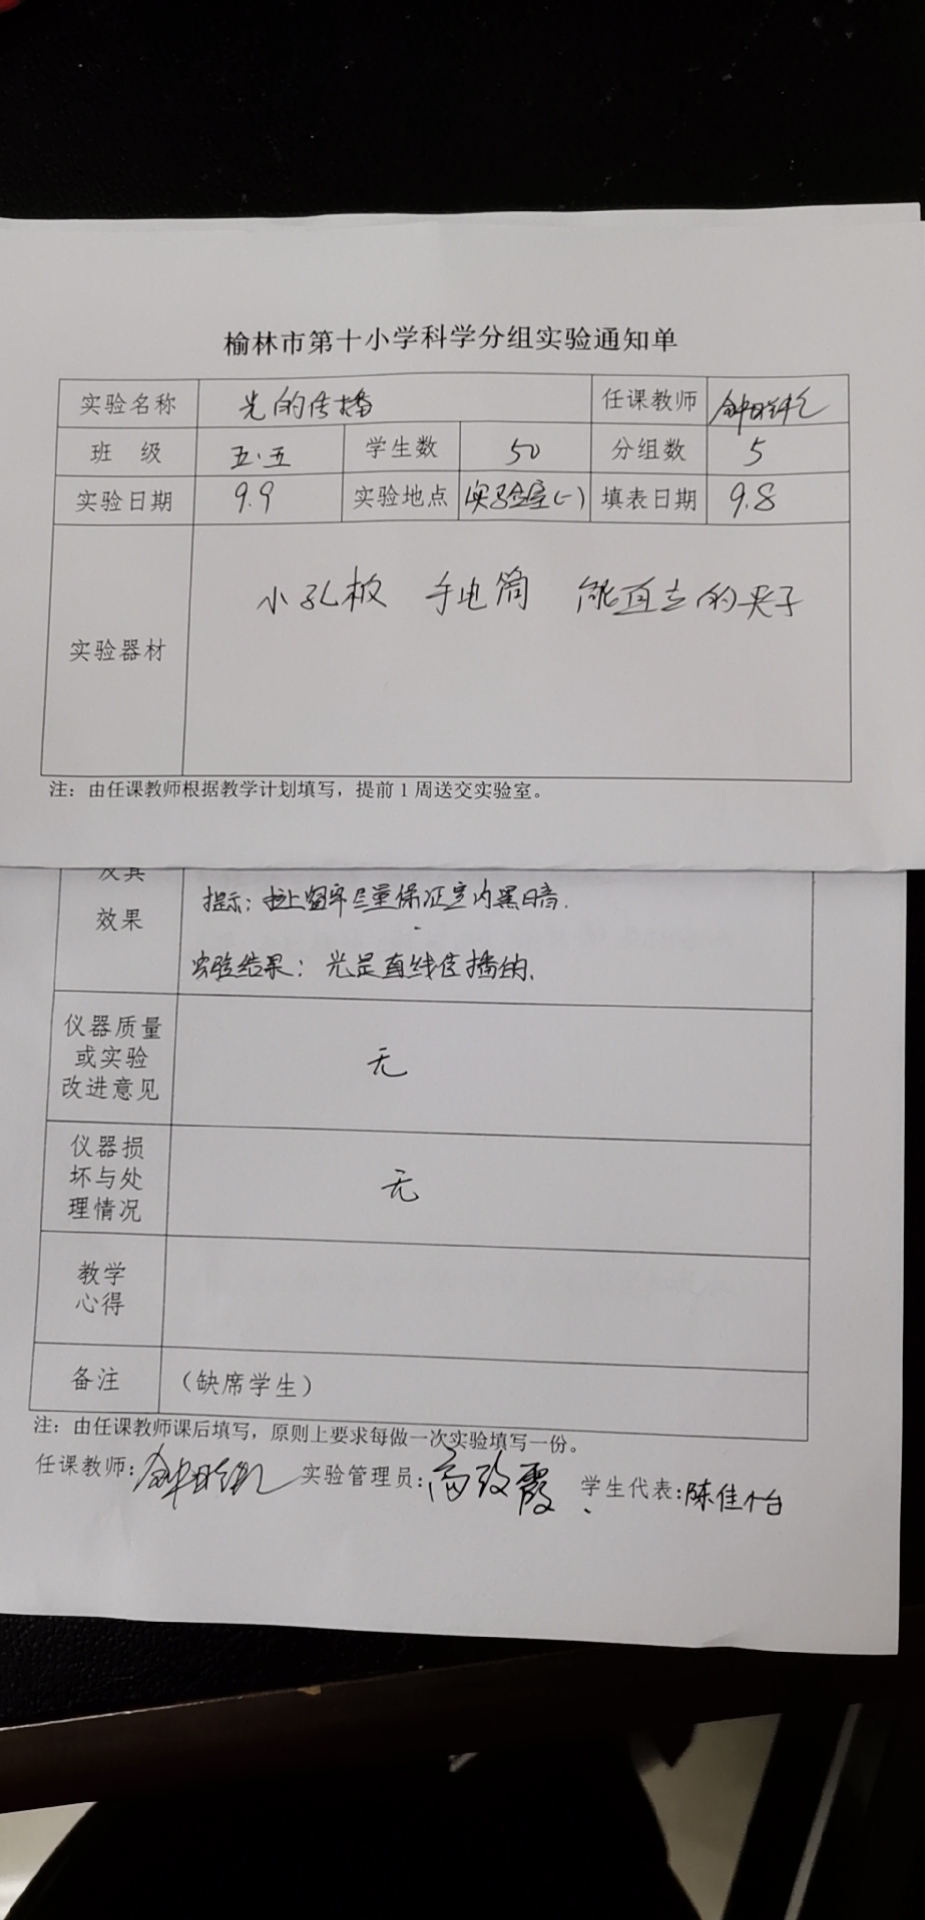 榆林市第十小学科学分组实验通知单
实验名称 光的传播 任课教师
班 级 五.五 学生数 50 分组数 5
实验日期 9.9 实验地点 实验室(一) 填表日期 9.8
实验器材 小孔板 手电筒 能直立的夹子
注：由任课教师根据教学计划填写，提前1周送交实验室。
及其
效果
提示：拉上窗帘尽量保证室内黑暗.
实验结果：光是直线传播的.
仪器质量
或实验
改进意见
无
仪器损
坏与处
理情况
无
教学
心得
备注 （缺席学生）
注：由任课教师课后填写，原则上要求每做一次实验填写一份。
任课教师: 实验管理员:高改霞 学生代表:陈佳怡